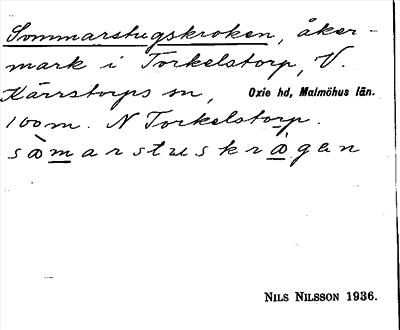 Sommarstugskroken, åker-
mark i Torkelstorp, V.
Kärrstorps sn, Oxie hd, Malmöhus län.
100 m. N Torkelstorp.
sòmarstueskrògen
NILS NILSSON 1936.